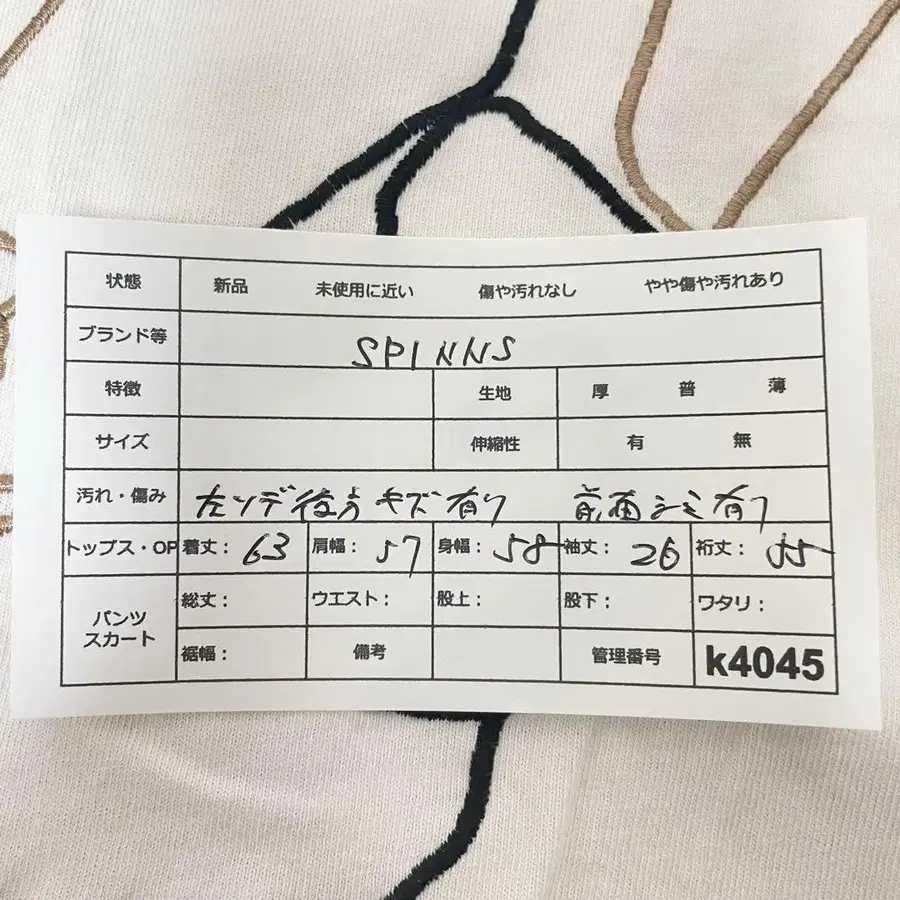 状態 新品 未使用に近い 傷や汚れなし やや傷や汚れあり
ブランド等 SPINNS
特徴 生地 厚 普 薄
サイズ 伸縮性 有 無
汚れ・傷み 左ソデ後方キズ有り 前面シミ有り
トップス・OP 着丈： 63 肩幅： 57 身幅： 58 袖丈： 26 裄丈： 55
パンツ スカート 総丈： ウエスト： 股上： 股下： ワタリ：
裾幅： 備考 管理番号 k4045